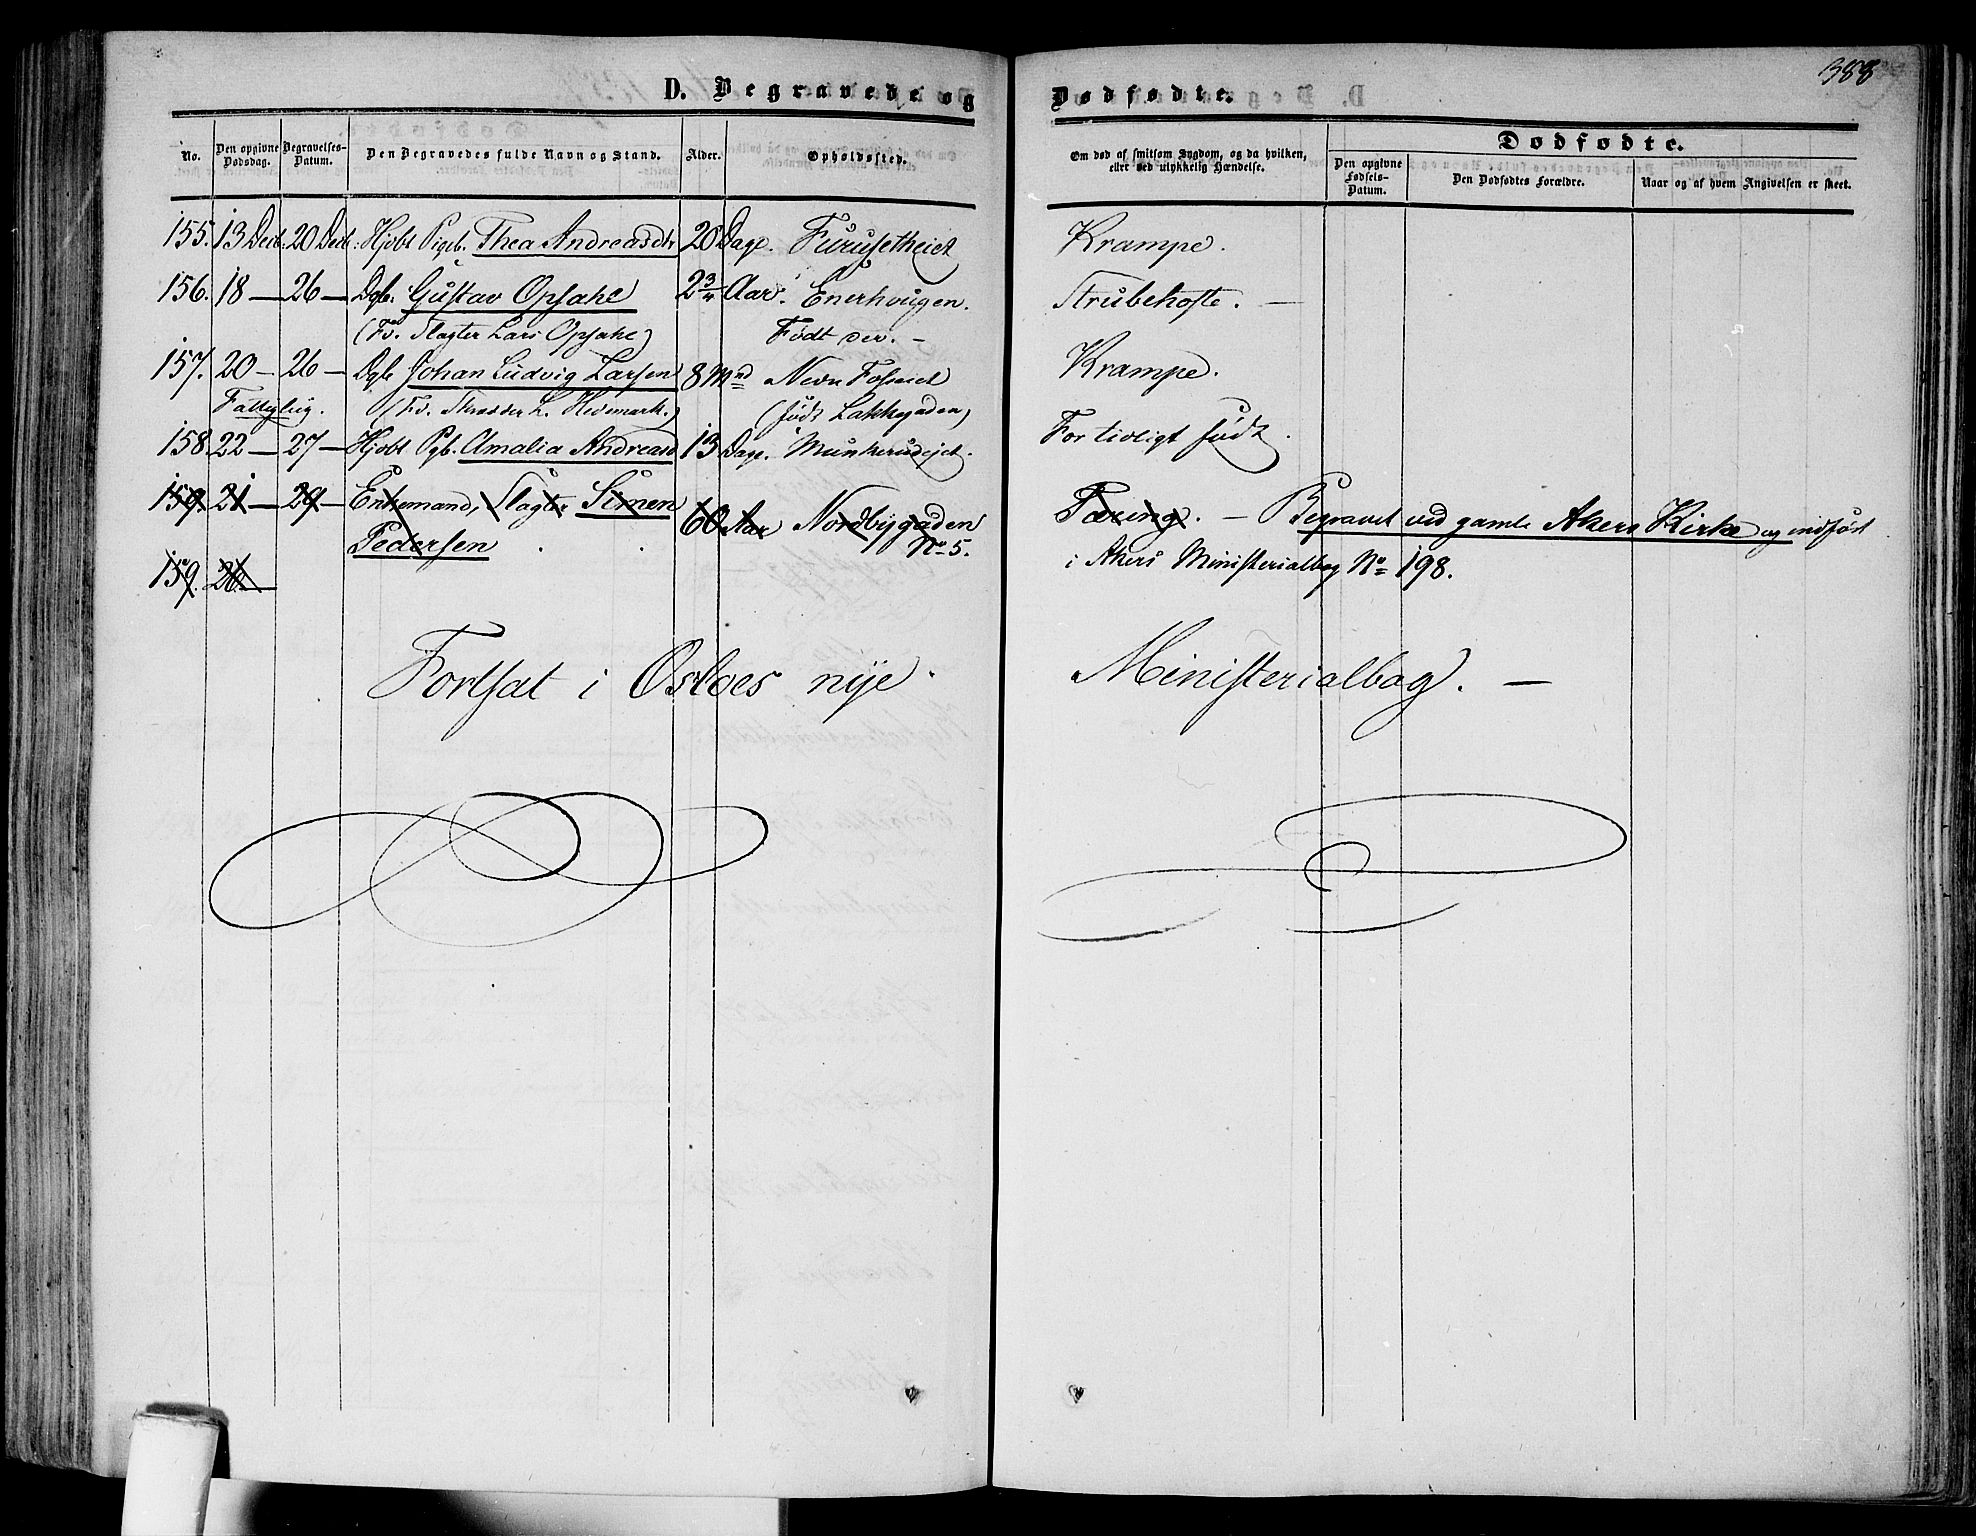 388
D. Begravede og Dødfødte.
Dødfødte.
No. Den opgivne Dødsdag. Begravelses-Datum. Den Begravedes fulde Navn og Stand. Alder. Opholdssted. Om død af smitsom Sygdom, og da hvilken, eller ved ulykkelig Hændelse. Den opgivne Fødsels-Datum. Den Dødfødtes Forældre. Naar og af hvem Angivelsen er skeet.
155. 13 Decb. 20 Decb. Hjobt Pigeb. Thea Andreasdtr 20 Dage. Furusetheiet Krampe.
156. 18 — 26 — Dgb. Gustav Opsahl 2 3/4 Aar. Enerhougen. Strubehoste. —
(Fv. Slagter Lars Opsahl) Født der. —
157. 20 — 26 — Dgb Johan Ludvig Larsen 8 Mnd Nedre Fosseiet Krampe.
Fattiglig. (Fv. Skrædder L. Hedemark.) (født Lakkegaden)
158. 22 — 27 — Hjobt Pgb. Amalia Andreasd 13 Dage. Munkerudejet. For tidligt født.
159. 21 — 29 — Enkemand, Slagter Simen 60 Aar Nordbygaden Tæring. — Begravet ved gamle Akers Kirke og indført
Pedersen No 5. i Akers Ministerialbog No 198.
159. 26 —
Fortsat i Osloes nye Ministerialbog. —